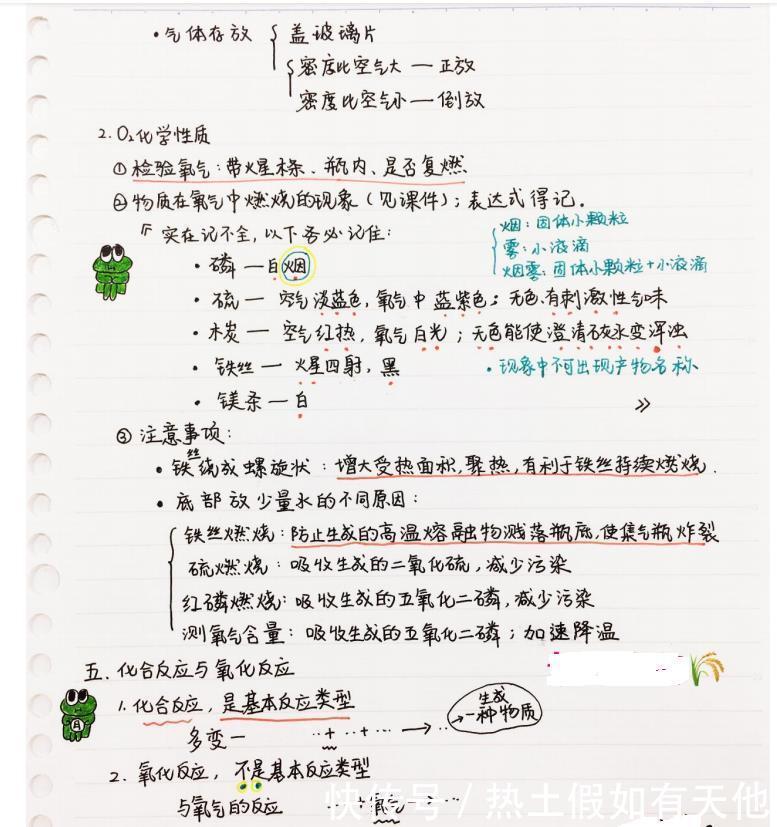 ·气体存放 { 盖玻璃片
密度比空气大 — 正放
密度比空气小 — 倒放
2. O₂化学性质
① 检验氧气：带火星木条、瓶内、是否复燃
② 物质在氧气中燃烧的现象（见课件）；表达式得记。
『实在记不全，以下务必记住：
烟：固体小颗粒
雾：小液滴
烟雾：固体小颗粒+小液滴
·磷 — 白烟
·硫 — 空气淡蓝色，氧气中蓝紫色；无色有刺激性气味
·木炭 — 空气红热，氧气白光；无色能使澄清石灰水变浑浊
·铁丝 — 火星四射，黑
·现象中不可出现产物名称
·镁条 — 白
》
③ 注意事项：
·铁丝绕成螺旋状：增大受热面积，聚热，有利于铁丝持续燃烧.
·底部放少量水的不同原因：
铁丝燃烧：防止生成的高温熔融物溅落瓶底，使集气瓶炸裂
硫燃烧：吸收生成的二氧化硫，减少污染
红磷燃烧：吸收生成的五氧化二磷，减少污染
测氧气含量：吸收生成的五氧化二磷；加速降温
五. 化合反应与氧化反应
1. 化合反应，是基本反应类型
多变一 ··+··+··· → ·· 生成一种物质
2. 氧化反应，不是基本反应类型
与氧气的反应 ··+氧气→···
快传号／热土假如有天他